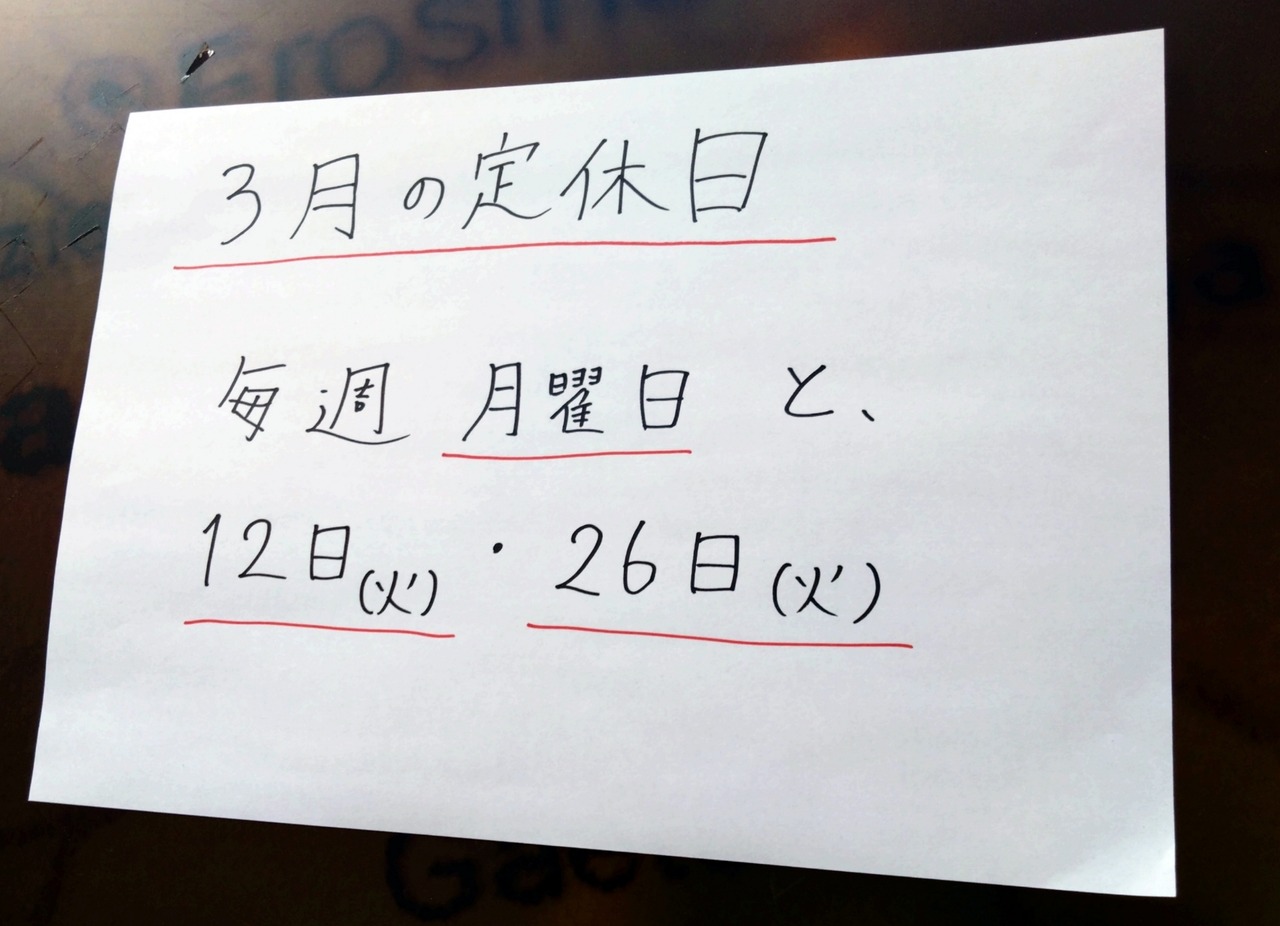 3月の定休日
毎週 月曜日 と、
12日(火)・26日(火)